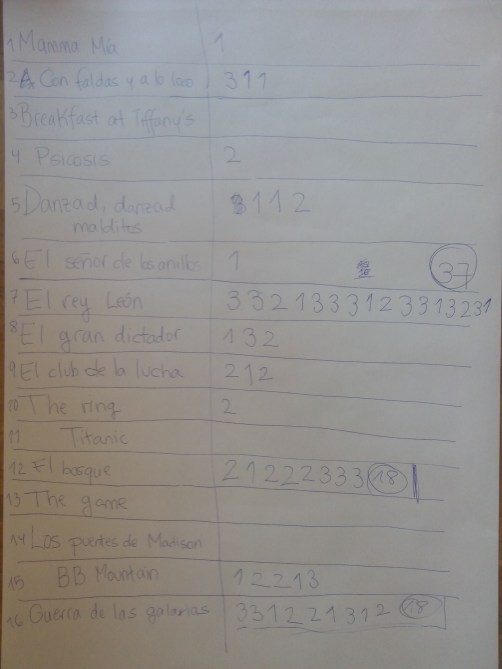 1 Mamma Mia 1
2 Con faldas y a lo loco 3 1 1
3 Breakfast at Tiffany's
4 Psicosis 2
5 Danzad, danzad 1 1 2
malditos
6 El señor de los anillos 1 37
7 El rey León 3 3 2 1 3 3 3 1 2 3 3 1 3 2 3 1
8 El gran dictador 1 3 2
9 El club de la lucha 2 1 2
10 The ring 2
11 Titanic
12 El bosque 2 1 2 2 2 3 3 3 18
13 The game
14 Los puentes de Madison
15 BB Mountain 1 2 2 1 3
16 Guerra de las galaxias 3 3 1 2 2 1 3 1 2 18